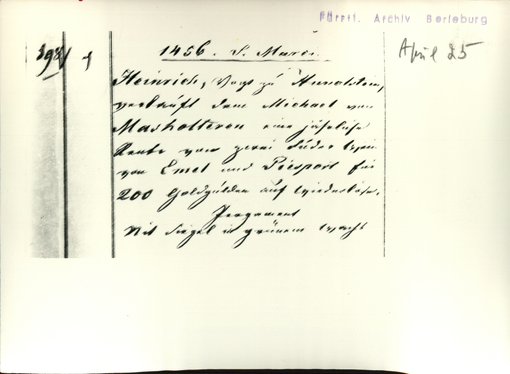 Fürstl. Archiv Berleburg
April 25
1456. S. Marci.
Heinrich, Vogt zu Hunolstein,
verkauft dem Michael von
eine jährliche
Rente von zwei Fuder Wein
von Emel und Piesport für
200 Goldgulden auf Wiederlöse.
Pergament
Mit Siegel in grünem Wachs